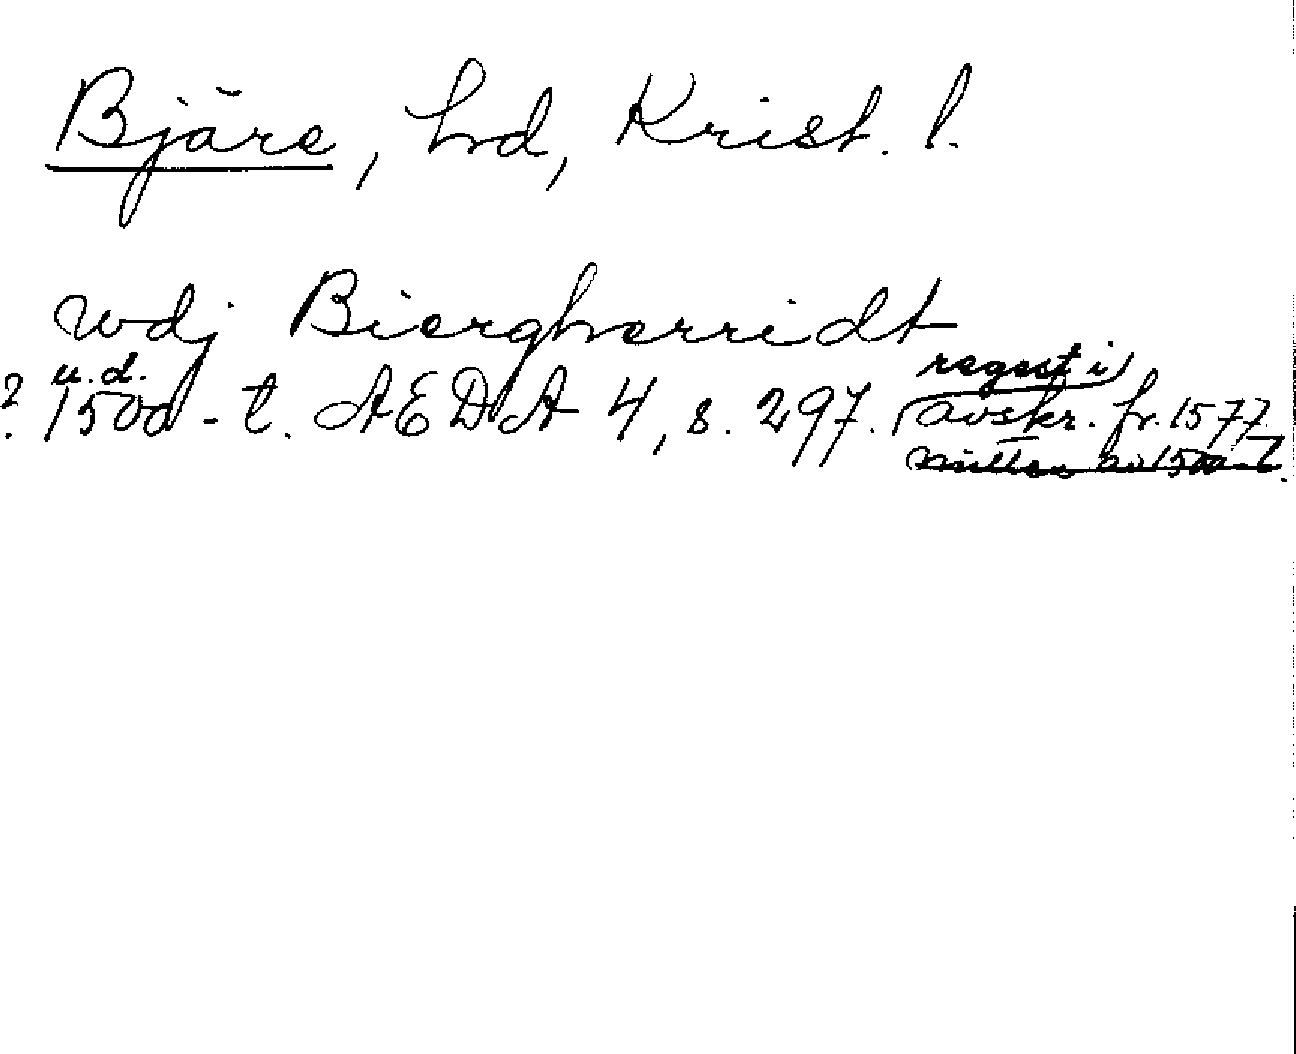 Bjäre, hd, Krist. l.
wdj Biergherridt
u.d.
? 1500-t. AEDA 4, s. 297. (regest i) avskr. fr. 1577
mitten av 1500-t.